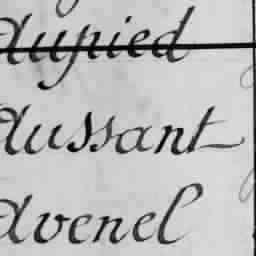 Aupied
Aussant
Avenel